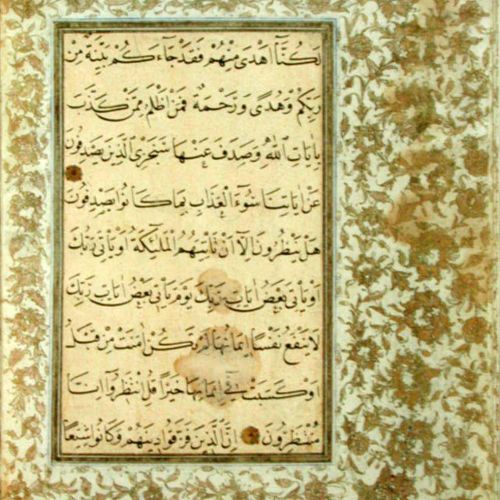 لَكُنَّا أَهْدَى مِنْهُمْ فَقَدْ جَاءَكُمْ بَيِّنَةٌ مِنْ
رَبِّكُمْ وَهُدًى وَرَحْمَةٌ فَمَنْ أَظْلَمُ مِمَّنْ كَذَّبَ
بِآيَاتِ اللَّهِ وَصَدَفَ عَنْهَا سَنَجْزِي الَّذِينَ يَصْدِفُونَ
عَنْ آيَاتِنَا سُوءَ الْعَذَابِ بِمَا كَانُوا يَصْدِفُونَ
هَلْ يَنْظُرُونَ إِلَّا أَنْ تَأْتِيَهُمُ الْمَلَائِكَةُ أَوْ يَأْتِيَ رَبُّكَ
أَوْ يَأْتِيَ بَعْضُ آيَاتِ رَبِّكَ يَوْمَ يَأْتِي بَعْضُ آيَاتِ رَبِّكَ
لَا يَنْفَعُ نَفْسًا إِيمَانُهَا لَمْ تَكُنْ آمَنَتْ مِنْ قَبْلُ
أَوْ كَسَبَتْ فِي إِيمَانِهَا خَيْرًا قُلِ انْتَظِرُوا إِنَّا
مُنْتَظِرُونَ إِنَّ الَّذِينَ فَرَّقُوا دِينَهُمْ وَكَانُوا شِيَعًا